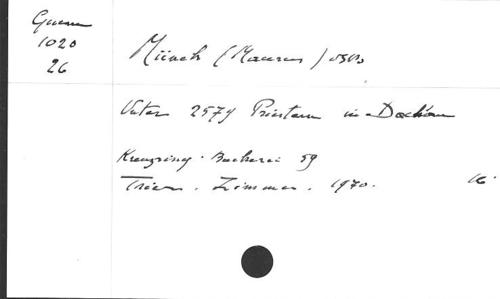 Guerre
1020
26
Münch (Maurus) OSB
Unter 2579 Priestern in Dachau
Kreuzring-Bucherei 59
Trier. Zimmer. 1970. 16°